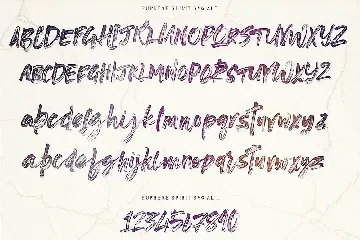 SUPREME SPIRIT SVG ALT
ABCDEFGHIJKLMNOPQRSTUVWXYZ
ABCDEFGHIJKLMNOPQRSTUVWXYZ
abcdefghijklmnopqrstuvwxyz
abcdefghijklmnopqrstuvwxyz
SUPREME SPIRIT SVG ALT
1234567890